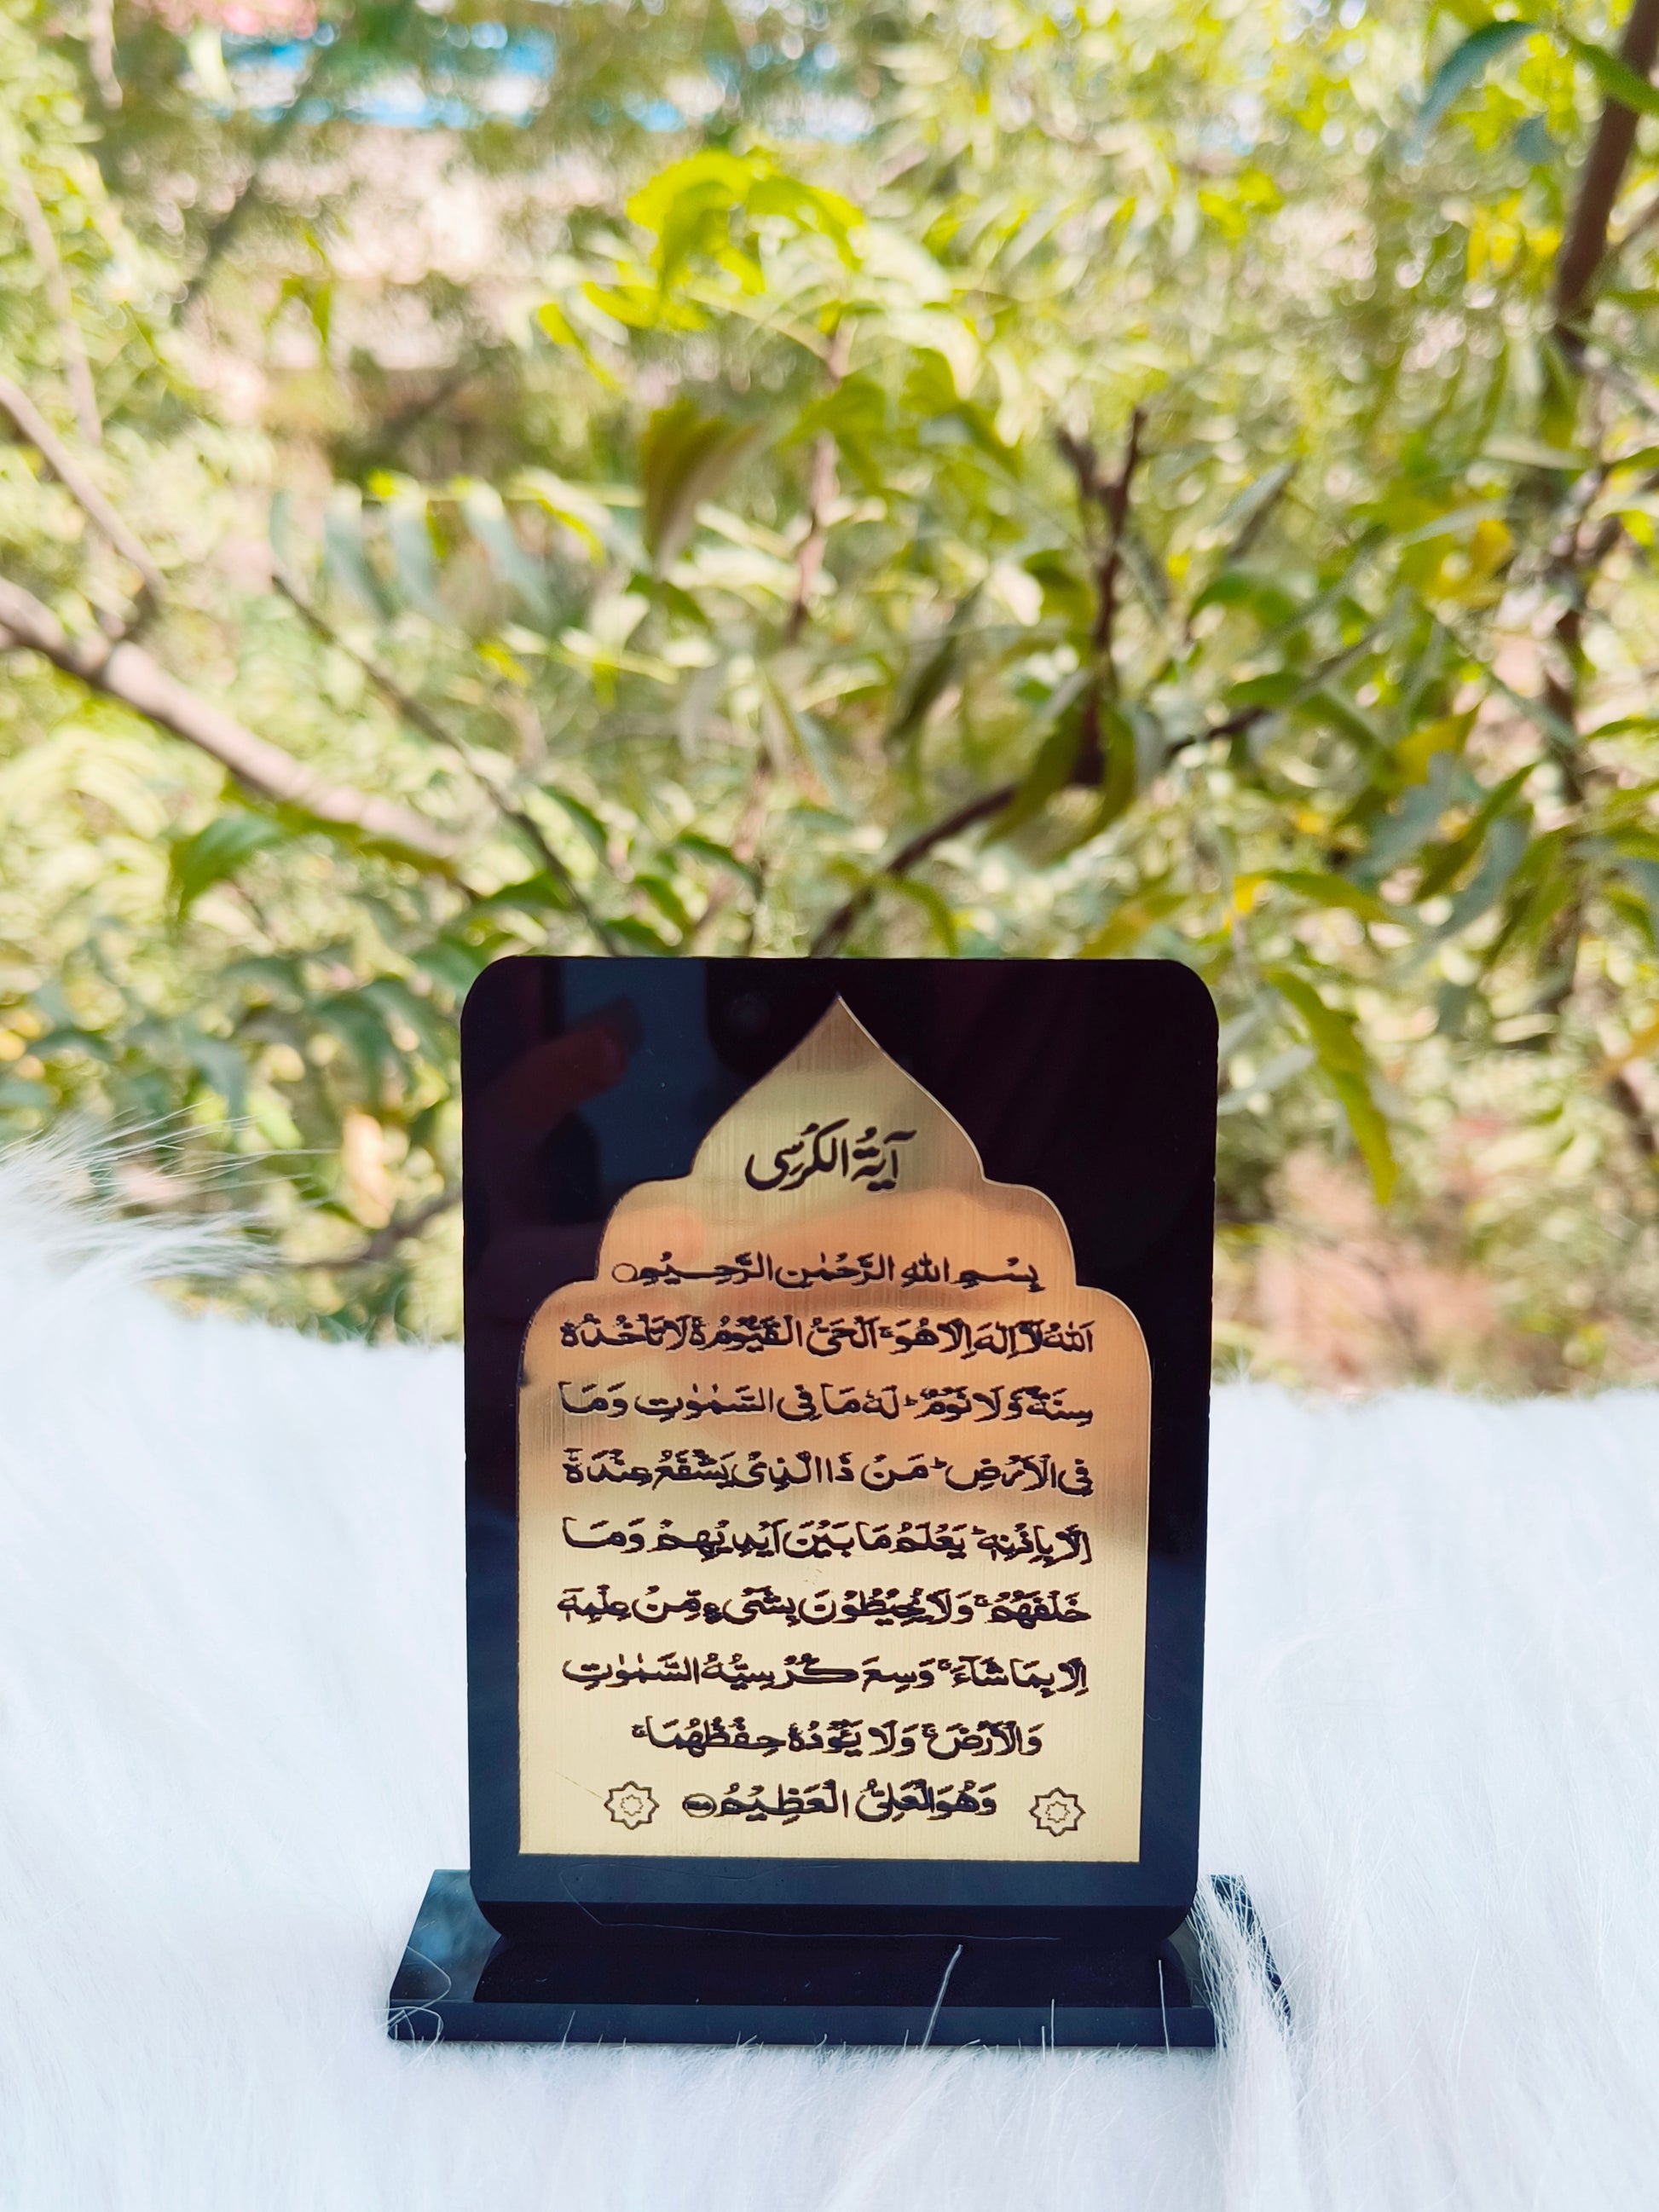 آيَةُ الكُرسِى
بِسْمِ اللهِ الرَّحْمٰنِ الرَّحِيْمِ○
اَللهُ لَاۤ اِلٰهَ اِلَّا هُوَ ۚ اَلْحَیُّ الْقَيُّوْمُ ۚ لَا تَاْخُذُهٗ
سِنَةٌ وَّلَا نَوْمٌ ؕ لَهٗ مَا فِى السَّمٰوٰتِ وَمَا
فِى الْاَرْضِ ؕ مَنْ ذَا الَّذِىْ يَشْفَعُ عِنْدَهٗۤ
اِلَّا بِاِذْنِهٖ ؕ يَعْلَمُ مَا بَيْنَ اَيْدِيْهِمْ وَمَا
خَلْفَهُمْ ۚ وَلَا يُحِيْطُوْنَ بِشَىْءٍ مِّنْ عِلْمِهٖۤ
اِلَّا بِمَا شَآءَ ۚ وَسِعَ كُرْسِيُّهُ السَّمٰوٰتِ
وَالْاَرْضَ ۚ وَلَا يَـُٔوْدُهٗ حِفْظُهُمَا ۚ
وَهُوَ الْعَلِىُّ الْعَظِيْمُ